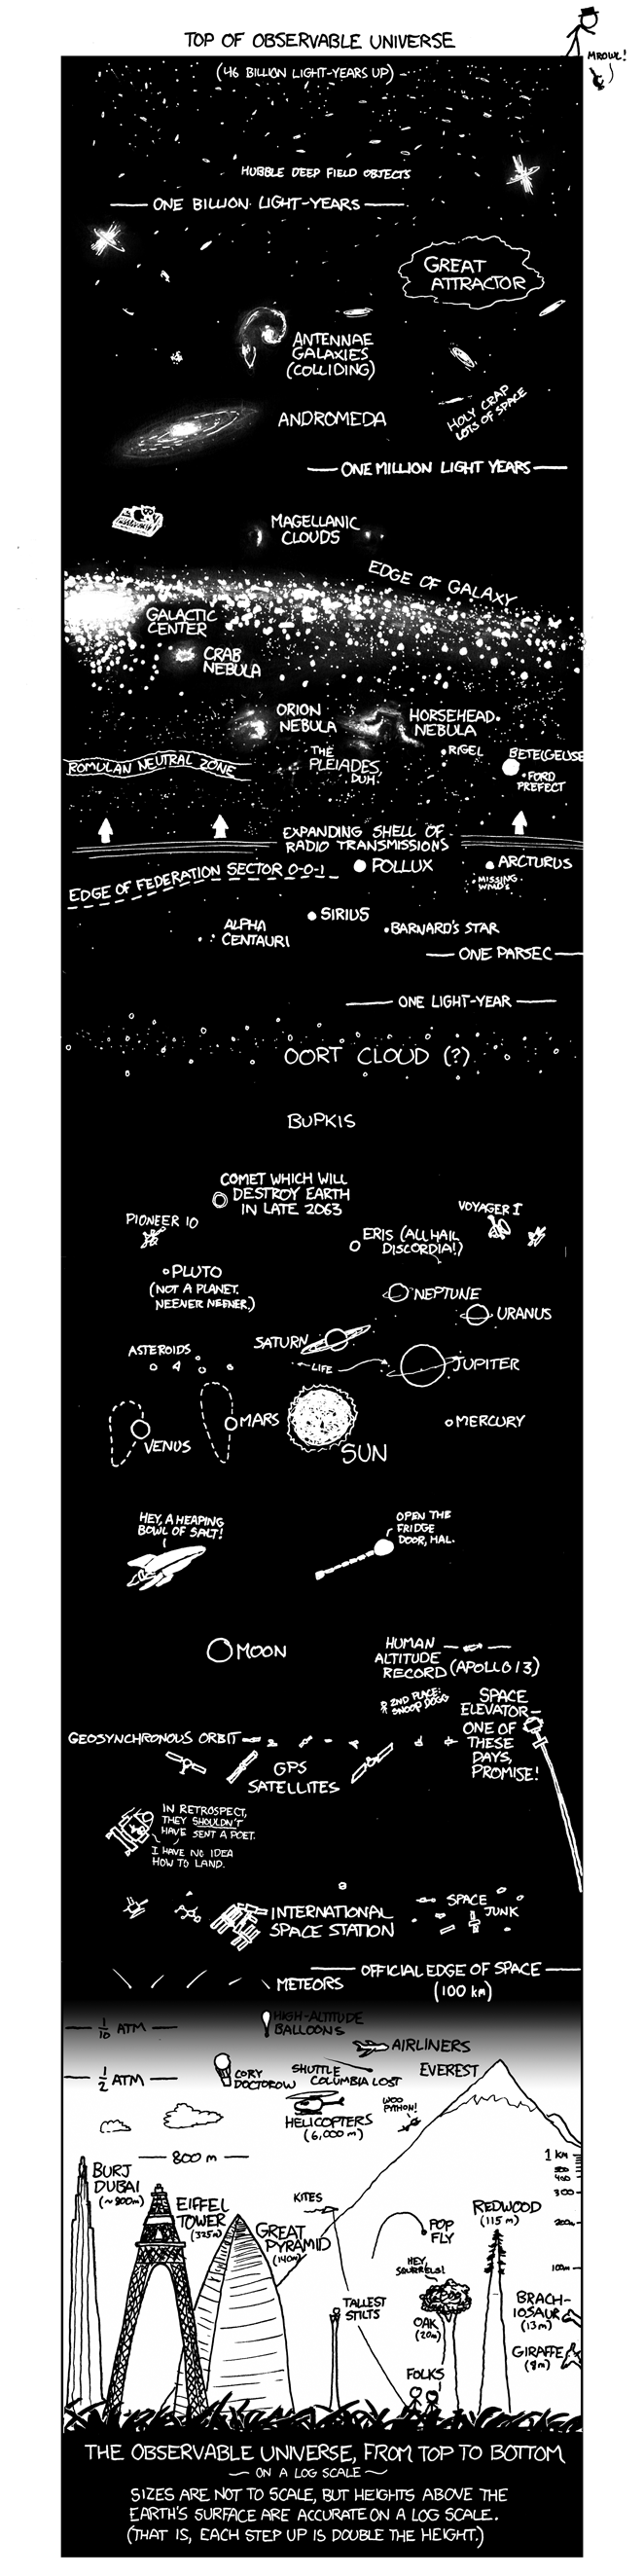 TOP OF OBSERVABLE UNIVERSE
MROWL!
(46 BILLION LIGHT-YEARS UP)
HUBBLE DEEP FIELD OBJECTS
ONE BILLION LIGHT-YEARS
GREAT
ATTRACTOR
ANTENNAE
GALAXIES
(COLLIDING)
HOLY CRAP
LOTS OF SPACE
ANDROMEDA
ONE MILLION LIGHT YEARS
MAGELLANIC
CLOUDS
EDGE OF GALAXY
GALACTIC
CENTER
CRAB
NEBULA
ORION
NEBULA
HORSEHEAD
NEBULA
THE
PLEIADES
DUH.
RIGEL
BETELGEUSE
FORD
PREFECT
ROMULAN NEUTRAL ZONE
EXPANDING SHELL OF
RADIO TRANSMISSIONS
EDGE OF FEDERATION SECTOR 0-0-1
POLLUX
ARCTURUS
MISSING
WMD'S
SIRIUS
ALPHA
CENTAURI
BARNARD'S STAR
ONE PARSEC
ONE LIGHT-YEAR
OORT CLOUD (?)
BUPKIS
COMET WHICH WILL
DESTROY EARTH
IN LATE 2063
PIONEER 10
VOYAGER I
ERIS (ALL HAIL
DISCORDIA!)
PLUTO
(NOT A PLANET.
NEENER NEENER.)
NEPTUNE
URANUS
SATURN
ASTEROIDS
LIFE
JUPITER
MARS
VENUS
SUN
MERCURY
HEY, A HEAPING
BOWL OF SALT!
OPEN THE
FRIDGE
DOOR, HAL.
MOON
HUMAN
ALTITUDE
RECORD (APOLLO 13)
2ND PLACE:
SNOOP DOGG
SPACE
ELEVATOR—
ONE OF
THESE
DAYS,
PROMISE!
GEOSYNCHRONOUS ORBIT
GPS
SATELLITES
IN RETROSPECT,
THEY SHOULDN'T
HAVE SENT A POET.
I HAVE NO IDEA
HOW TO LAND.
INTERNATIONAL
SPACE STATION
SPACE
JUNK
OFFICIAL EDGE OF SPACE
(100 km)
METEORS
1/10 ATM
HIGH-ALTITUDE
BALLOONS
AIRLINERS
1/2 ATM
CORY
DOCTOROW
SHUTTLE
COLUMBIA LOST
EVEREST
HELICOPTERS
(6,000 m)
WOO
PYTHON!
800 m
1 km
500
400
300
200m
100m
BURJ
DUBAI
(~800m)
EIFFEL
TOWER
(325m)
GREAT
PYRAMID
(140m)
KITES
POP
FLY
REDWOOD
(115 m)
HEY,
SQUIRRELS!
TALLEST
STILTS
OAK
(20m)
BRACH-
IOSAUR
(13m)
GIRAFFE
(8m)
FOLKS
THE OBSERVABLE UNIVERSE, FROM TOP TO BOTTOM
— ON A LOG SCALE —
SIZES ARE NOT TO SCALE, BUT HEIGHTS ABOVE THE
EARTH'S SURFACE ARE ACCURATE ON A LOG SCALE.
(THAT IS, EACH STEP UP IS DOUBLE THE HEIGHT.)